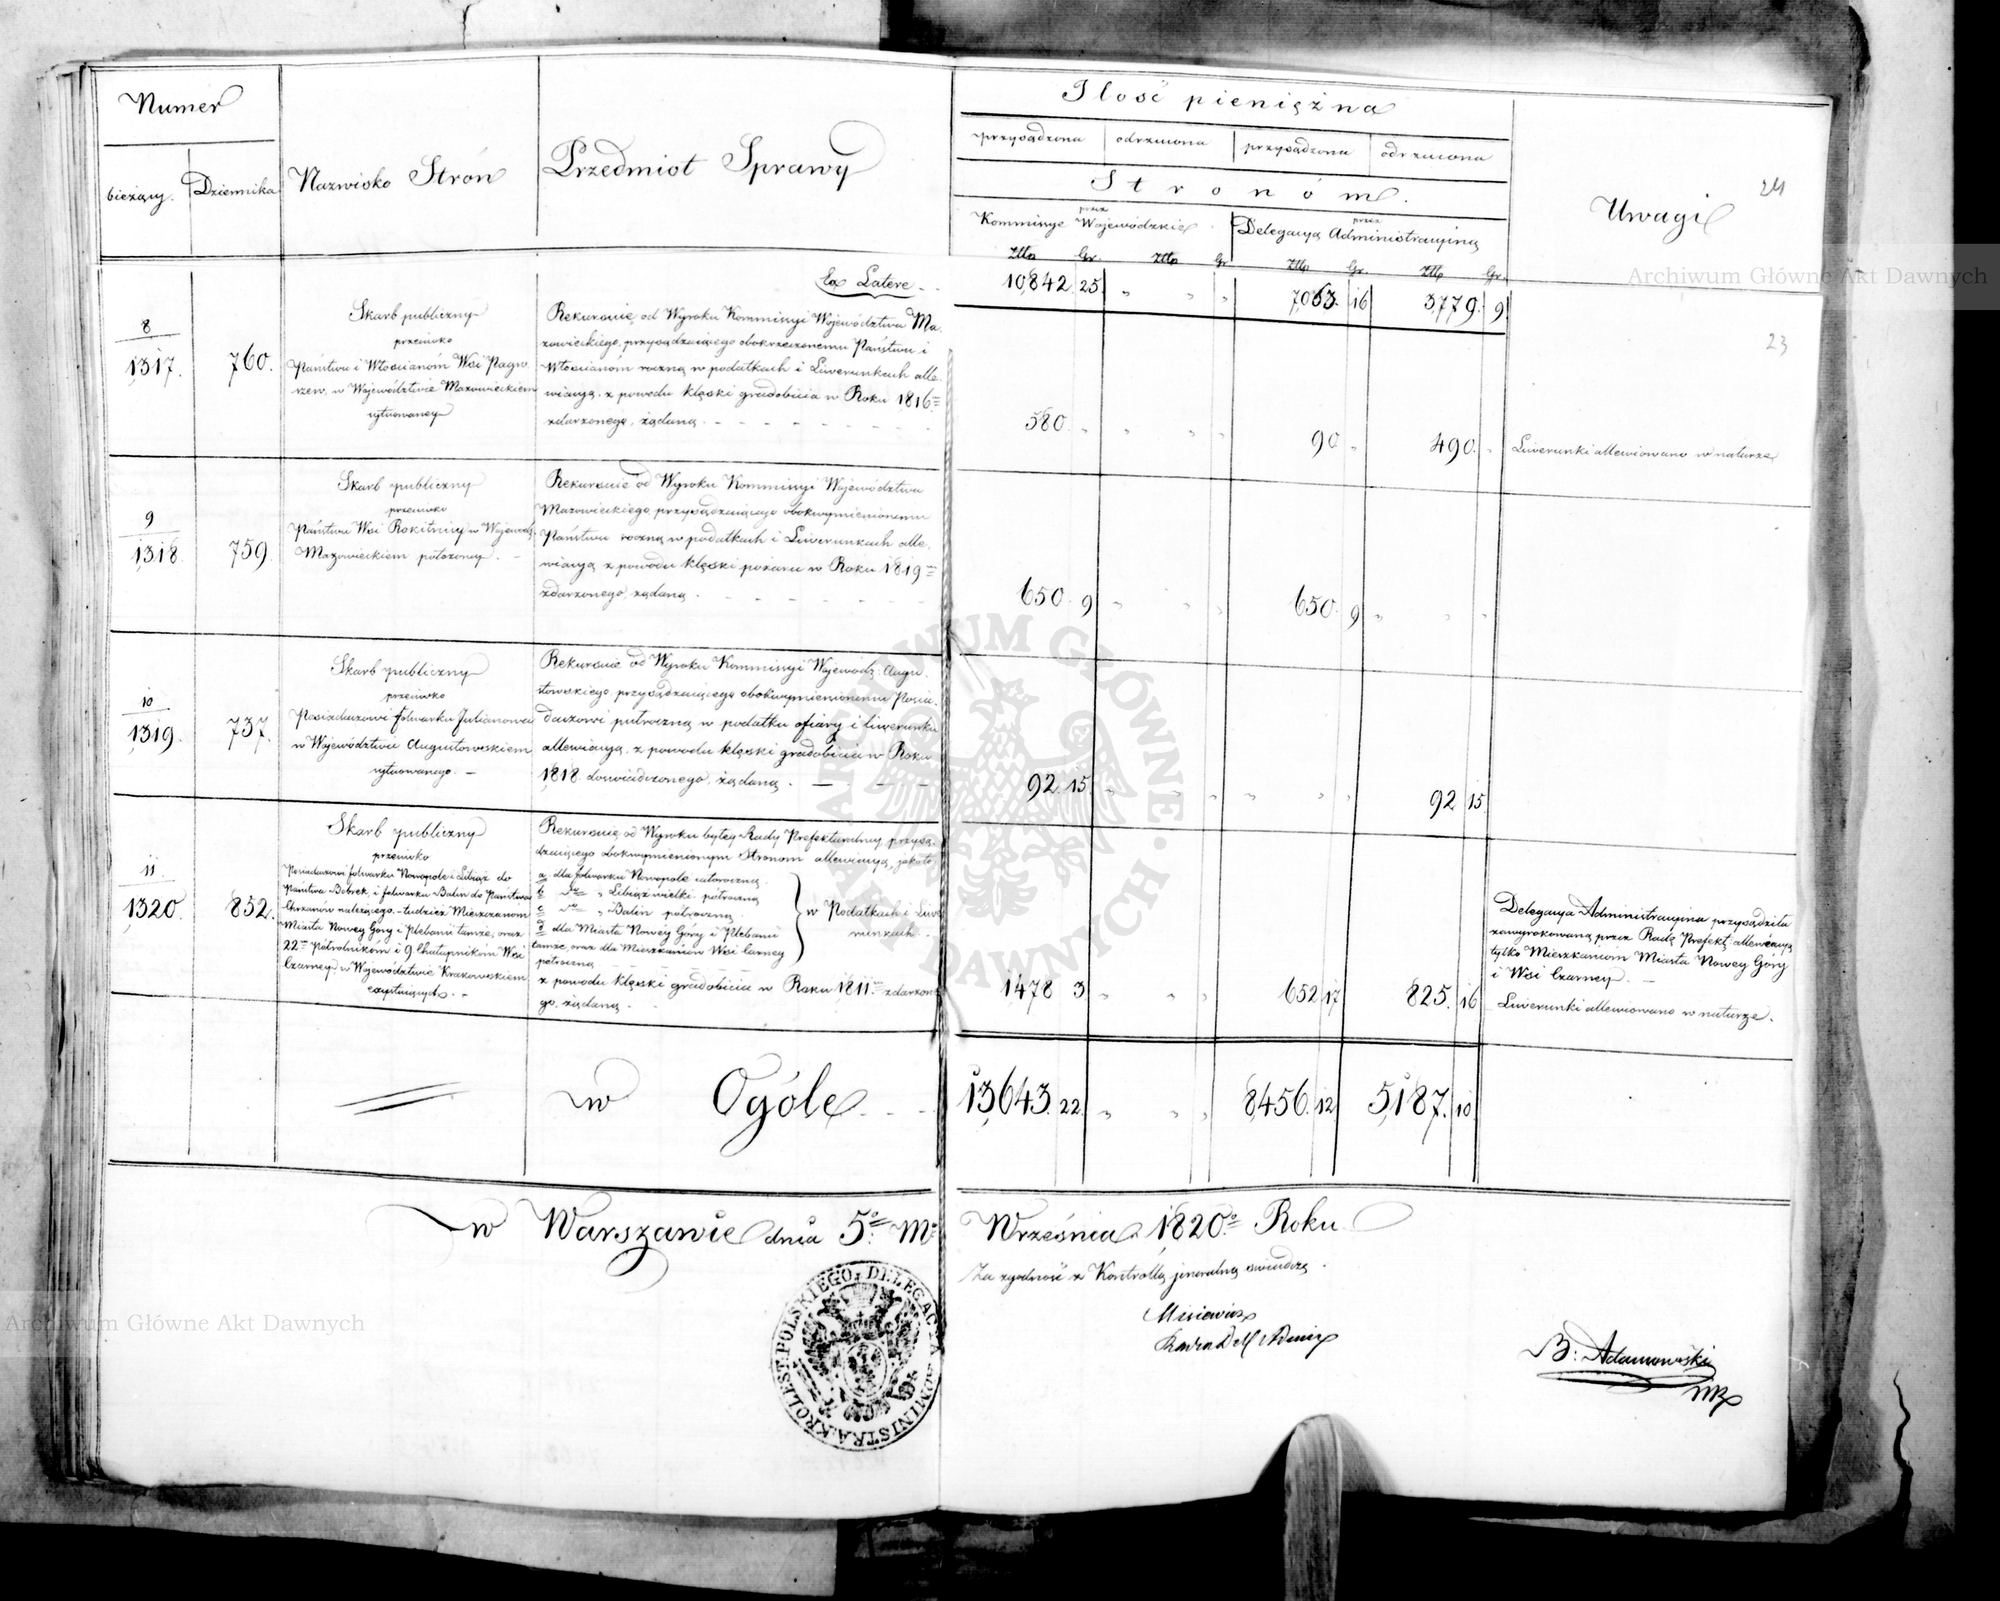 Numer
bieżący.
Dziennika
Nazwisko Stron
Przedmiot Sprawy
Ilość pieniężna
przysądzona
odrzucona
przysądzona
odrzucona
Stronóm.
przez
Kommissye Wojewódzkie
przez
Delegacyą Administracyiną
Uwagi
24
23
Złłp Gr. Złłp Gr Złłp Gr. Złłp Gr.
Ex Latere
10,842 25. „ „ „ 7,063. 16 3,779. 9
8
1317.
760.
Skarb publiczny
przeciwko
Państwu i Włościanóm Wsi
w Województwie Mazowieckiem
sytuowaney
Rekursuie od Wyroku Kommissyi Województwa Ma-
zowieckiego, przysądzaiącego obokrzeczonemu Państwu i
Włościanóm roczną w podatkach i Liwerunkach alle-
wiacyą, z powodu klęski gradobicia w Roku 1816=
zdarzonego, żądaną.
580. „ „ „ „ 90 „ 490. „
Liwerunki allewiowano w naturze
9
1318.
759.
Skarb publiczny
przeciwko
Państwu Wsi Rokitnicy w Wojewodz:
Mazowieckiem położoney.
Rekursuie od Wyroku Kommissyi Województwa
Mazowieckiego, przysądzaiącego obokwymienionemu
Państwu roczną w podatkach i Liwerunkach alle-
wiacyą z powodu klęski pożaru w Roku 1819=
zdarzonego, żądaną.
650. 9 „ „ „ 650. 9 „ „ „
10
1319.
737.
Skarb publiczny
przeciwko
Posiadaczowi folwarku Julianowa
w Województwie Augustowskiem
sytuowanego.
Rekursuie od Wyroku Kommissyi Wojewódz: Augu-
stowskiego, przysądzaiącego obokwymienionemu Posia-
daczowi półroczną w podatku ofiary i liwerunku
allewiacyą, z powodu klęski gradobicia w Roku
1818. doświadczonego, żądaną.
92. 15. „ „ „ „ „ 92 15
11
1320.
852.
Skarb publiczny
przeciwko
Posiadaczowi folwarku Nowopole i Libiąż do
Państwa Bobrek, i folwarku Balin do Państwa
Chrzanów należącego, tudzież Mieszczanom
Miasta Nowey Góry i Plebanii tamże, oraz
22= Półrolnikóm i 9 Chałupnikóm Wsi
Czarney w Województwie Krakowskiem
Rekursuie od Wyroku byłey Rady Prefekturalney, przysą-
dzaiącego obokwymienionym Stronom allewiacyą, jakoto:
a dla folwarku Nowopole całoroczną.
b do „ Libiąż wielki półroczną
c do „ Balin półroczną.
d dla Miasta Nowey Góry i Plebanii
tamże, oraz dla Mieszkańców Wsi Czarney
półroczną
w Podatkach i Liwe-
runkach.
z powodu klęski gradobicia w Roku 1811= zdarzone-
go, żądaną.
1478 3 „ „ „ 652 17 825. 16
Delegacya Administracyina przysądziła
zawyrokowaną przez Radę Prefekt: allewiacyą
tylko Mieszkańcom Miasta Nowey Góry
i Wsi Czarney.
Liwerunki allewiowano w naturze.
w Ogóle
13,643. 22. „ „ „ 8,456. 12 5,187. 10
w Warszawie dnia 5. M: Września 1820. Roku
Za zgodność z Kontrollą jeneralną świadczą.
B: Adamowski
KROLES: POLSKIEGO, DELEGACYA ADMINISTRA:
ARCHIWUM GŁÓWNE AKT DAWNYCH
Archiwum Główne Akt Dawnych
Archiwum Główne Akt Dawnych